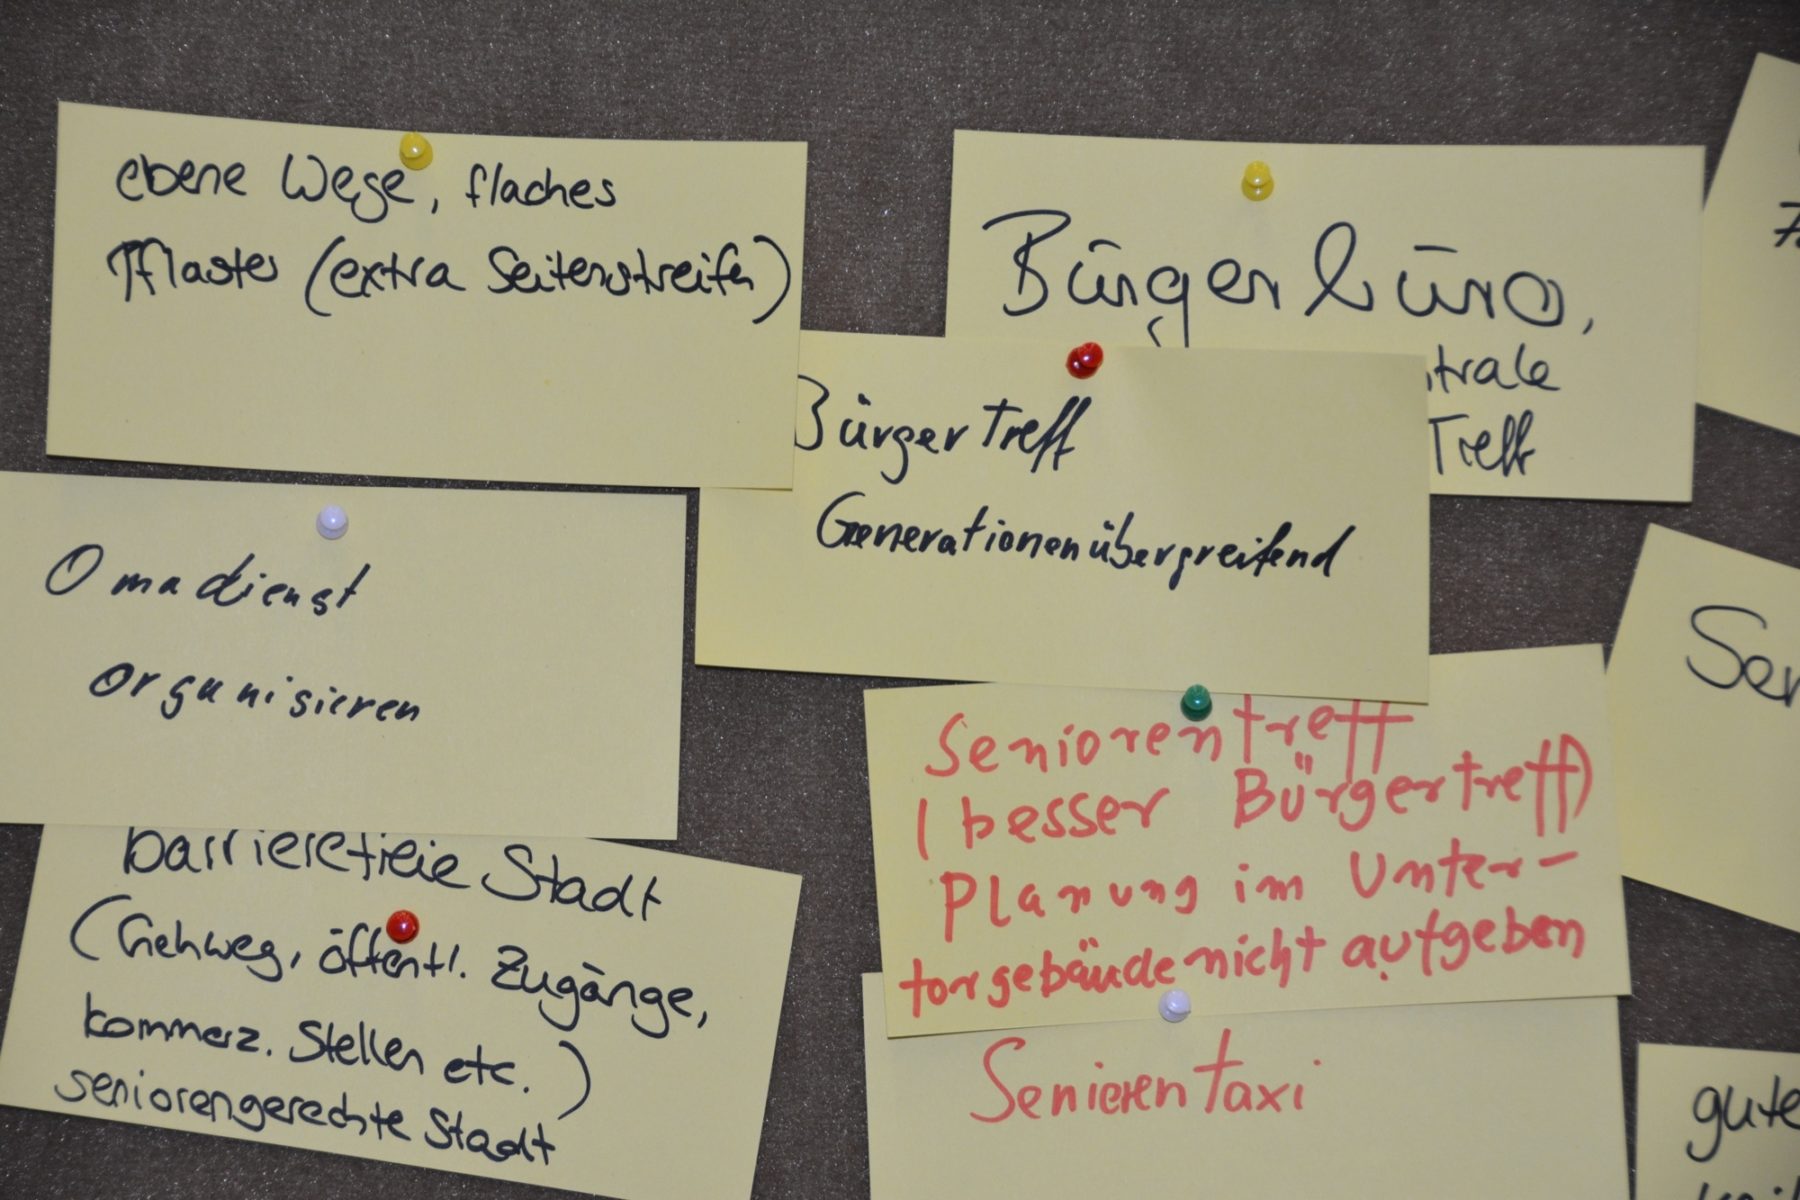 ebene Wege, flaches
Pflaster (extra Seitenstreifen)
Bürgerbüro,
Treff
Bürgertreff
Generationenübergreifend
Omadienst
organisieren
Seniorentreff
(besser Bürgertreff)
Planung im Unter-
torgebäude nicht aufgeben
barrierefreie Stadt
(Gehweg, öffentl. Zugänge,
kommerz. Stellen etc.)
seniorengerechte Stadt
Senioren taxi
Sen
gute